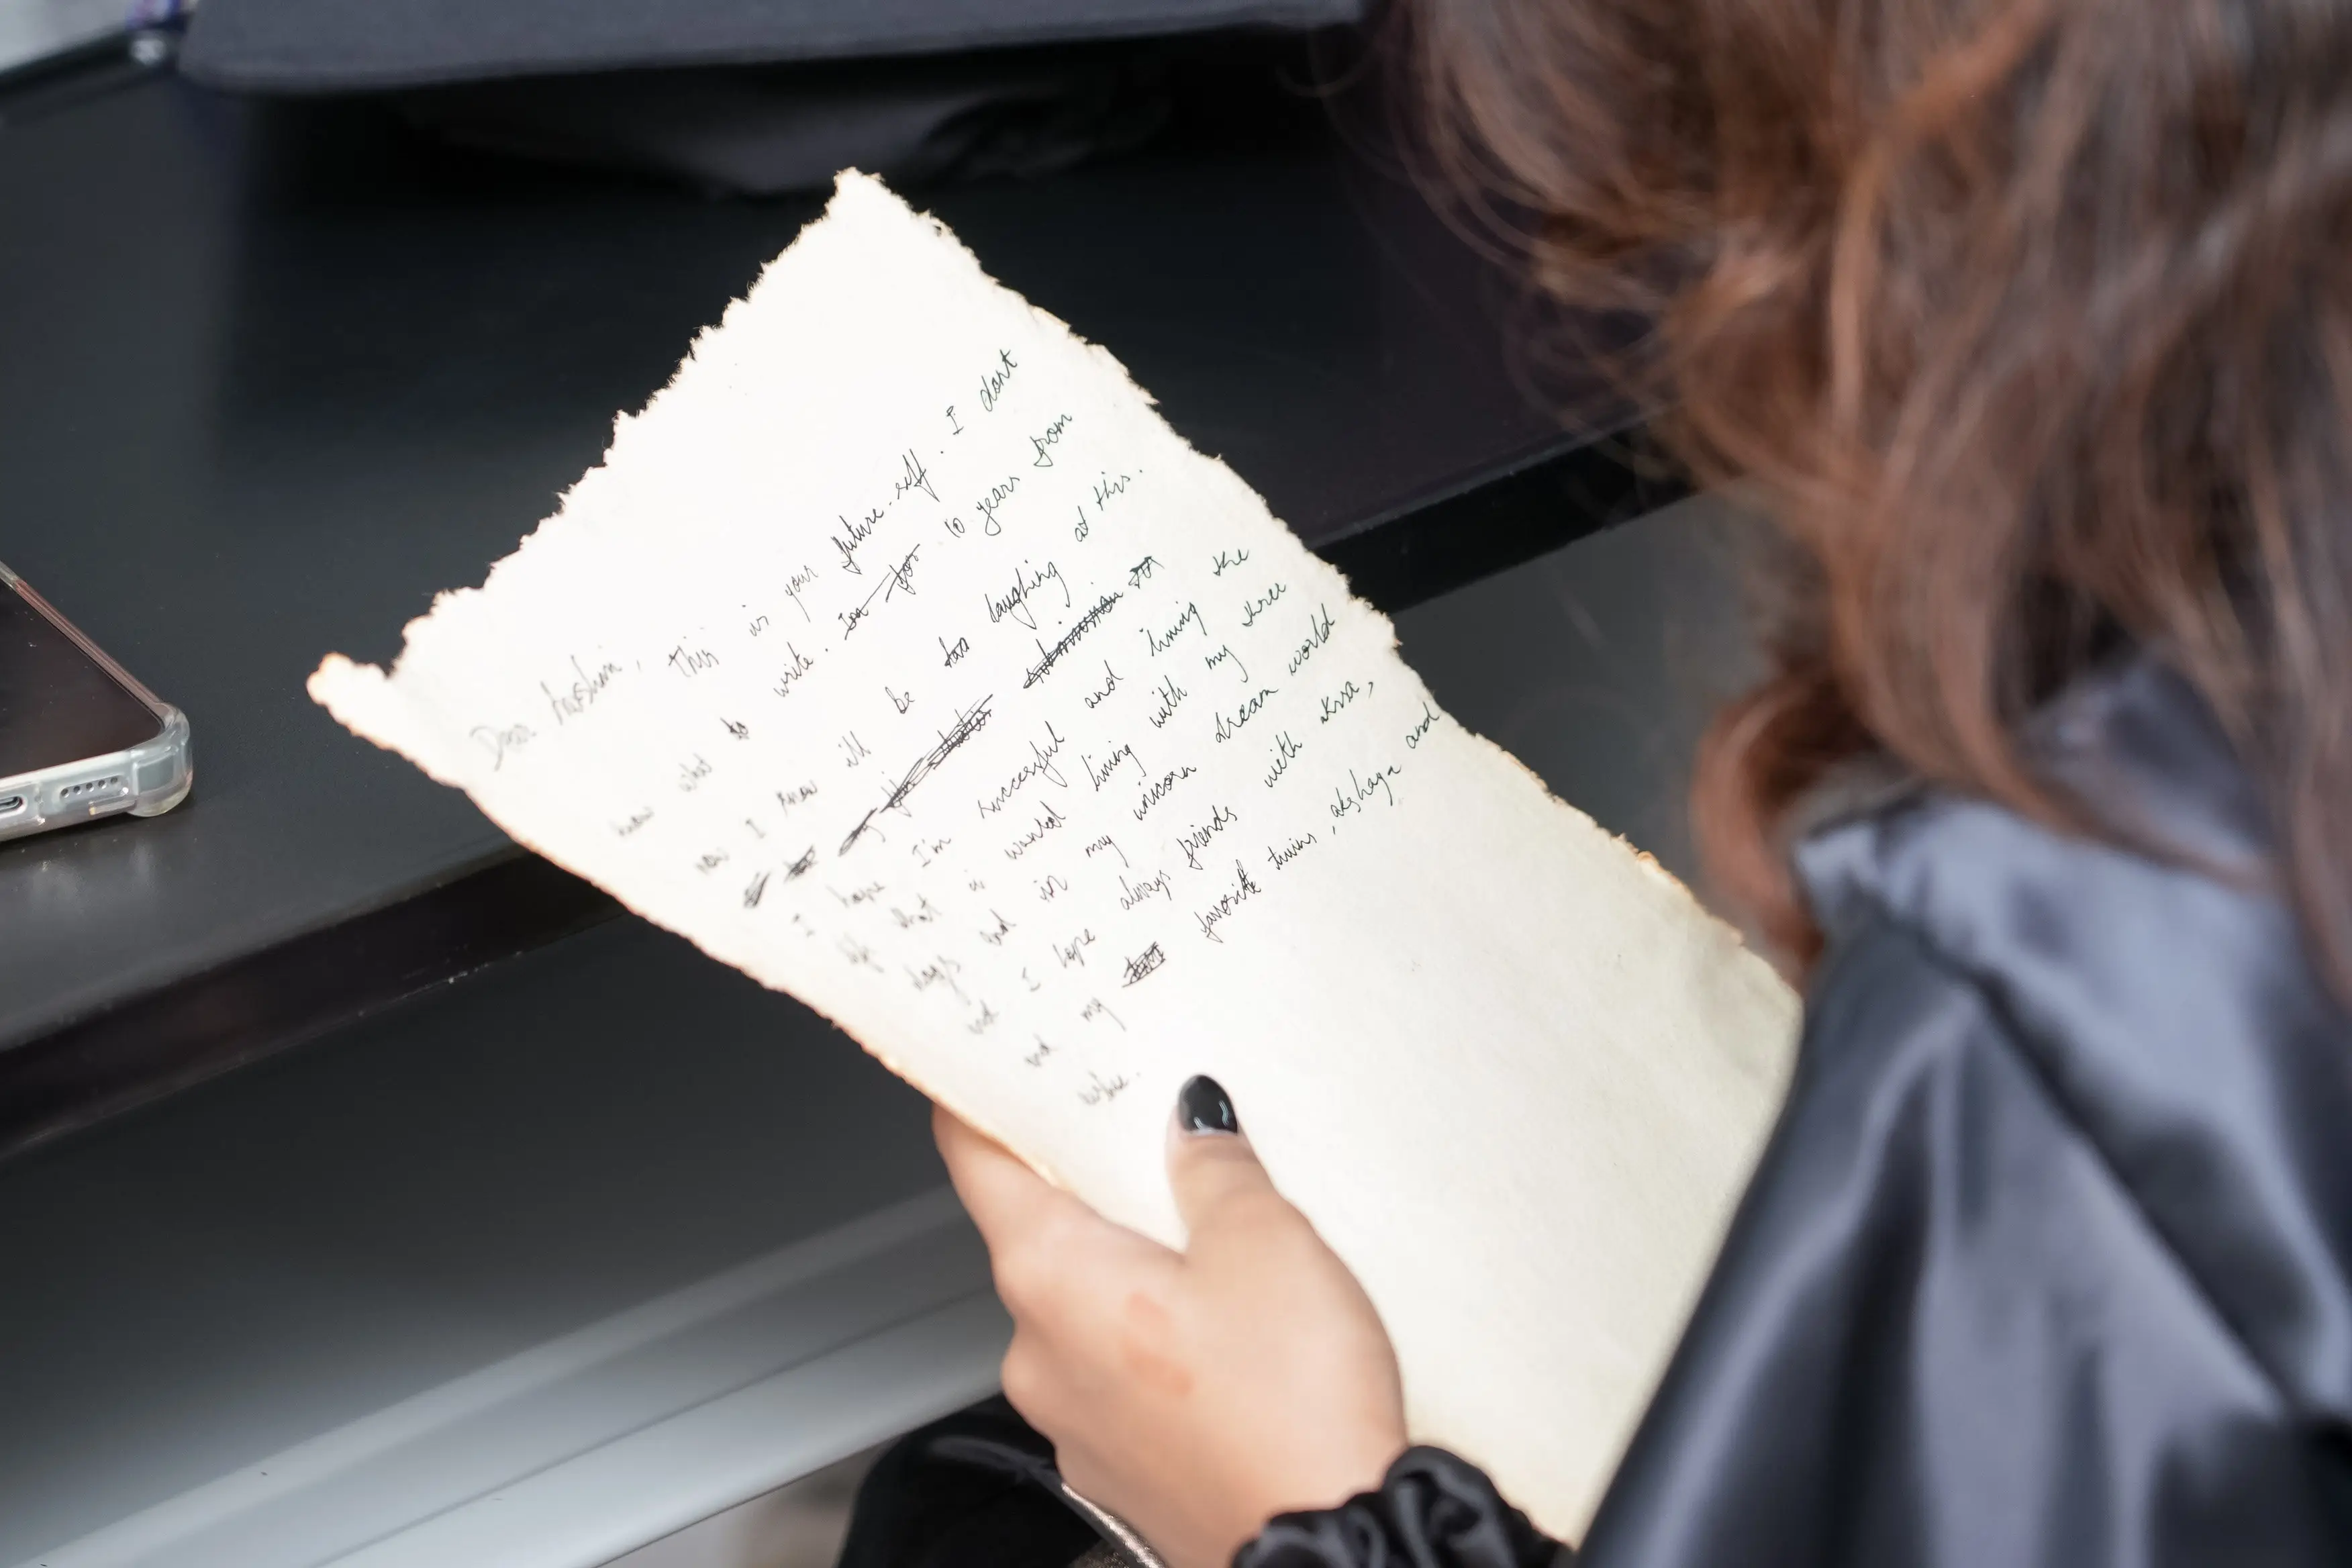 Dear, this is your future-self. I dont
know what to write. Im for 10 years from
now I know ill be too laughing at this.
I hope I'm successful and lining the
life that is wanted lining with my three
dogs and in my unicorn dream world
and I hope always friends with
and my favorite twins, akshaya and